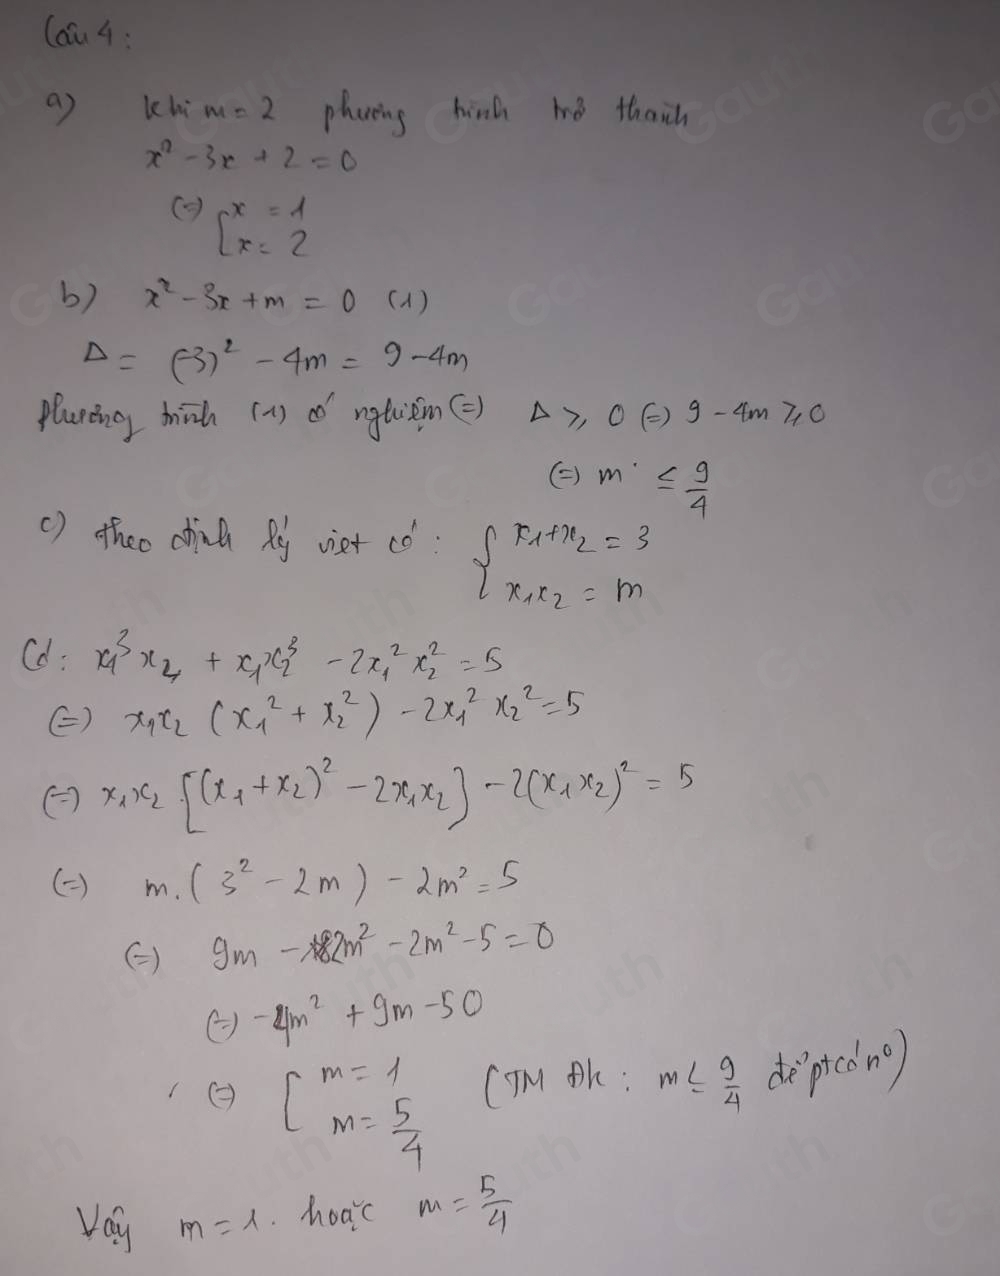 Câu 4:
a) Khi m = 2 phương trình trở thành
x² - 3x + 2 = 0
(=) [ x = 1
x = 2
b) x² - 3x + m = 0 (1)
Δ = (-3)² - 4m = 9 - 4m
Phương trình (1) có nghiệm (=) Δ ≥ 0 (=) 9 - 4m ≥ 0
(=) m ≤ 9/4
c) Theo định lý viet có: { x₁ + x₂ = 3
x₁x₂ = m
Có: x₁³x₂ + x₁x₂³ - 2x₁²x₂² = 5
(=) x₁x₂ (x₁² + x₂²) - 2x₁²x₂² = 5
(=) x₁x₂ [(x₁ + x₂)² - 2x₁x₂] - 2(x₁x₂)² = 5
(=) m.(3² - 2m) - 2m² = 5
(=) 9m - 2m² - 2m² - 5 = 0
(=) -4m² + 9m - 50
(=) [ m = 1
m = 5/4
(TM ĐK: m ≤ 9/4 để pt có n⁰)
Vậy m = 1. hoặc m = 5/4